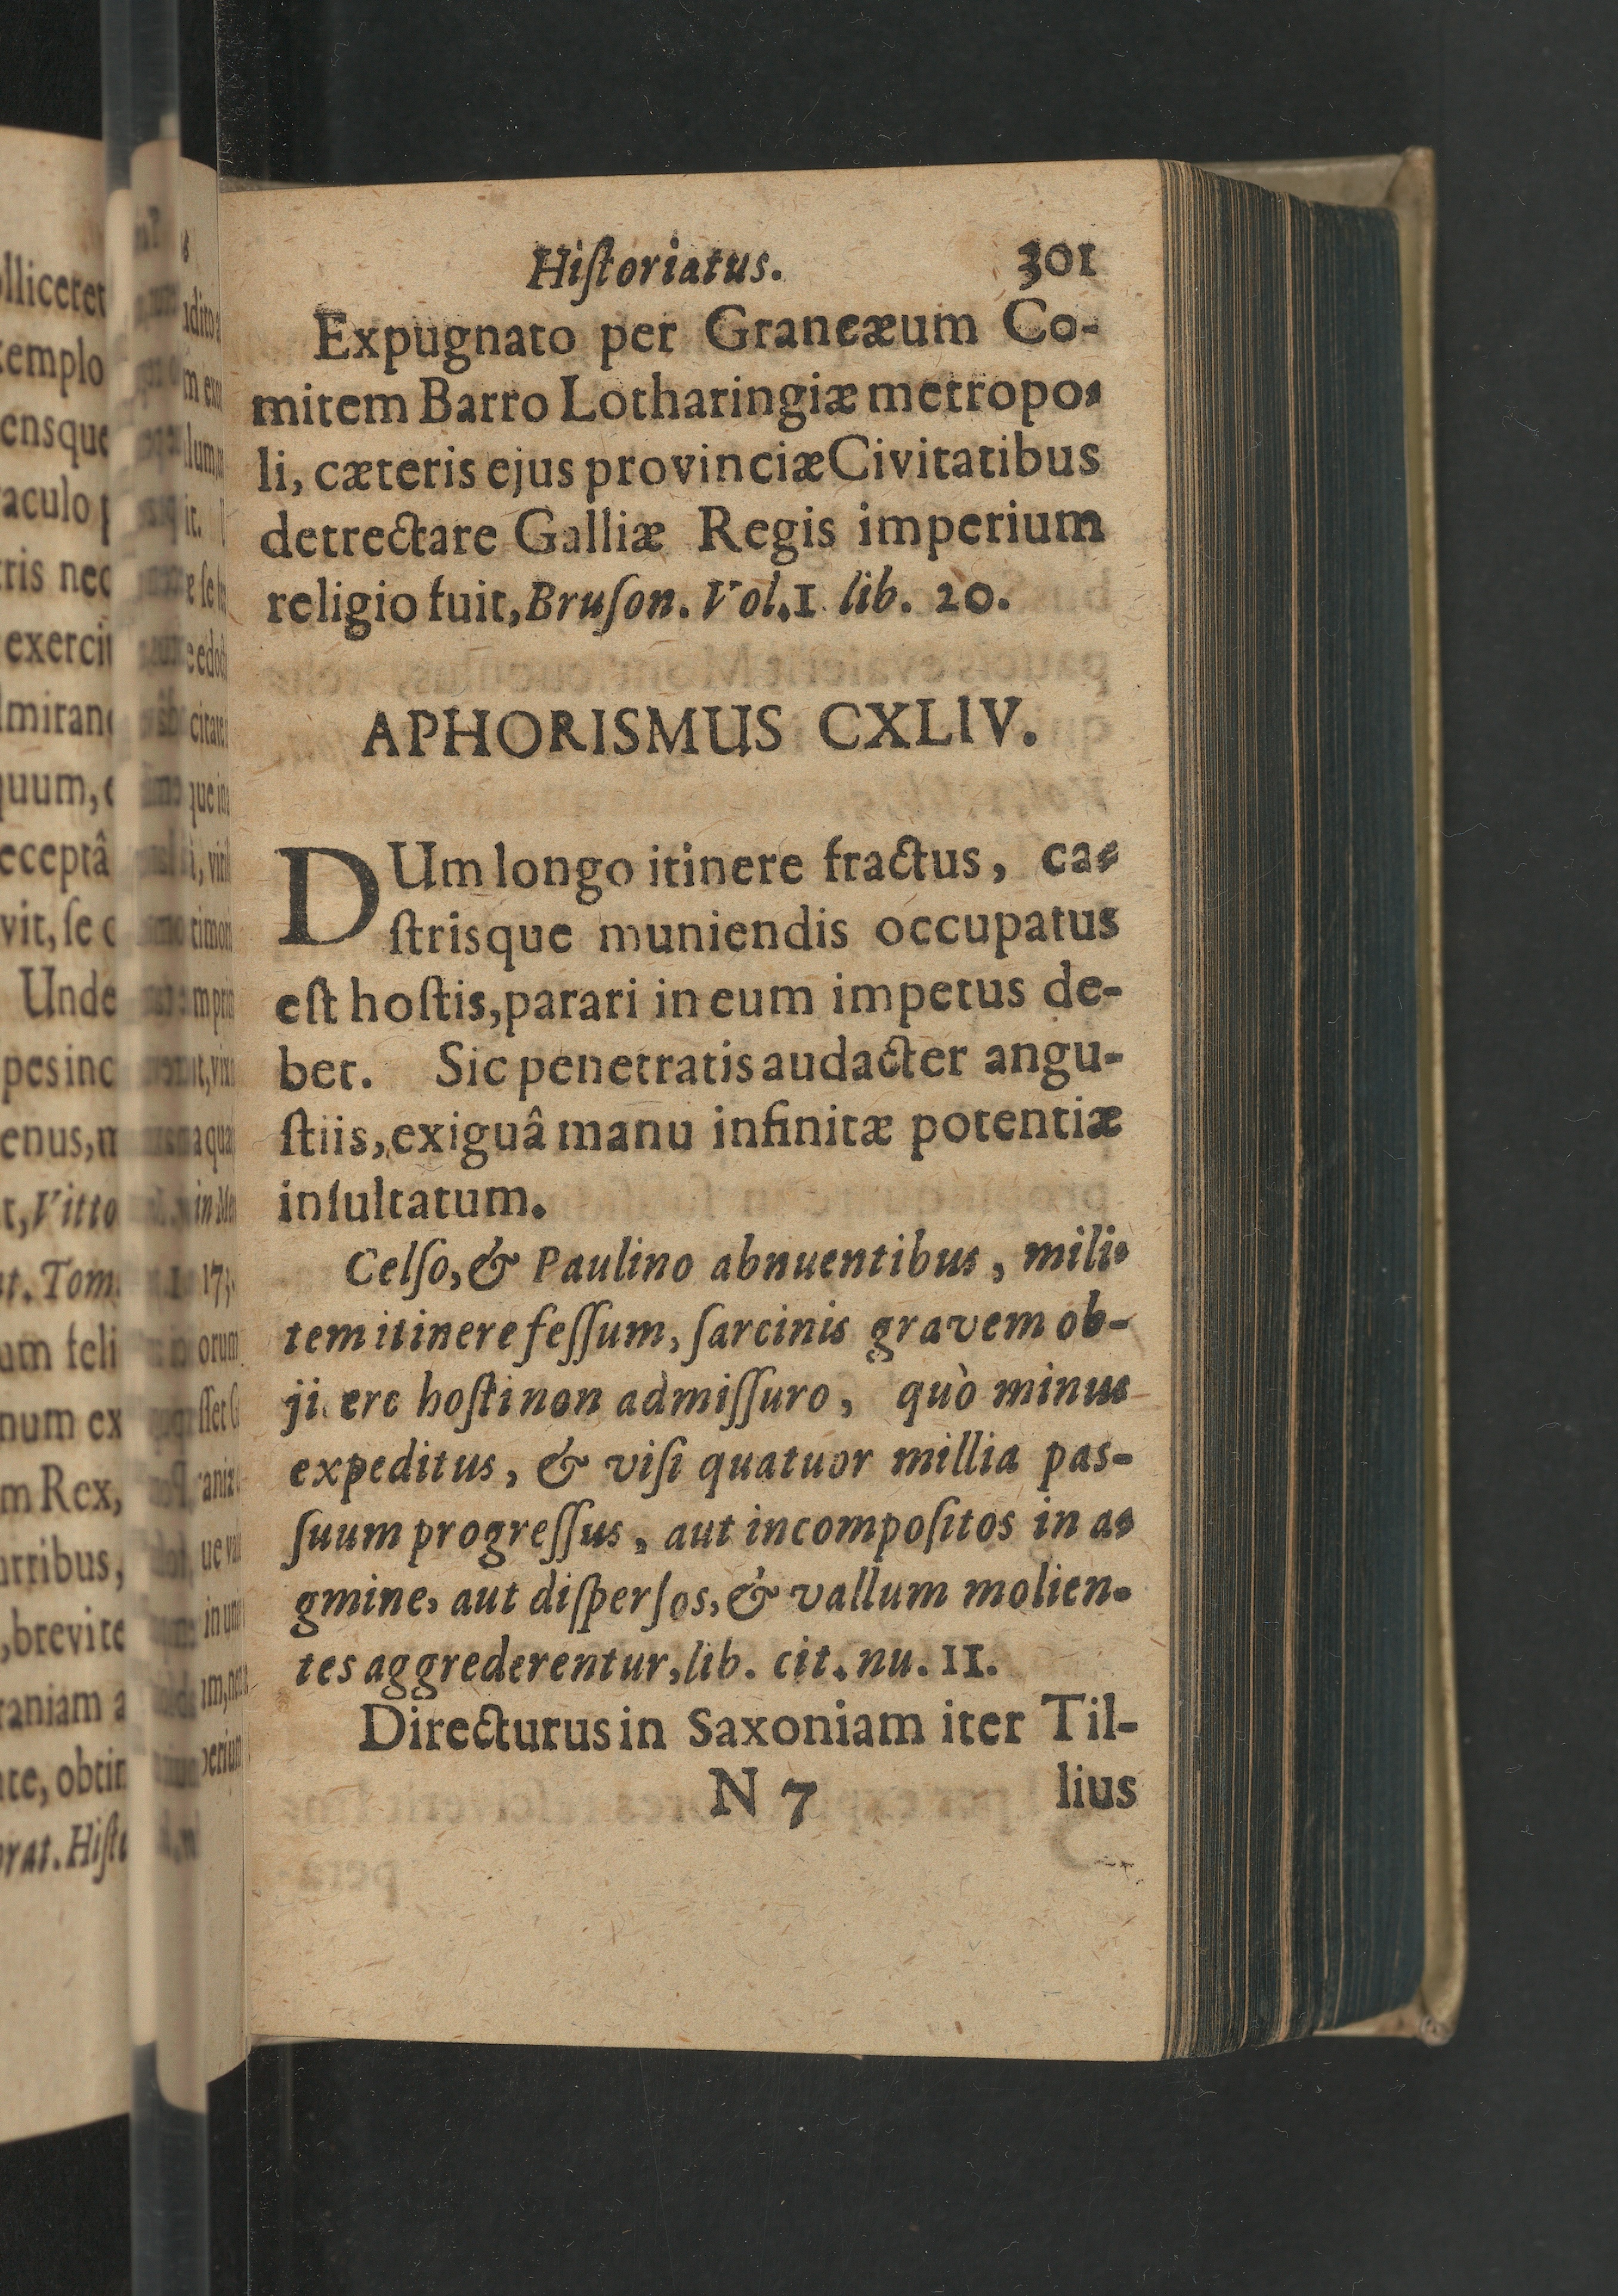 Hiſtoriatus. 301
Expugnato per Grancæum Co-
mitem Barro Lotharingiæ metropo-
li, cæteris ejus provinciæ Civitatibus
detrectare Galliæ Regis imperium
religio fuit, Bruſon. Vol. 1 lib. 20.
APHORISMUS CXLIV.
DUm longo itinere fractus, ca-
ſtrisque muniendis occupatus
eſt hoſtis, parari in eum impetus de-
bet. Sic penetratis audacter angu-
ſtiis, exiguâ manu infinitæ potentiæ
inſultatum.
Celſo, & Paulino abnuentibus, mili-
tem itinere feſſum, ſarcinis gravem ob-
ji ere hoſti non admiſſuro, quò minus
expeditus, & viſi quatuor millia pas-
ſuum progreſſus, aut incompoſitos in a-
gmine, aut diſperſos, & vallum molien-
tes aggrederentur, lib. cit. nu. 11.
Directurus in Saxoniam iter Til-
N 7 lius